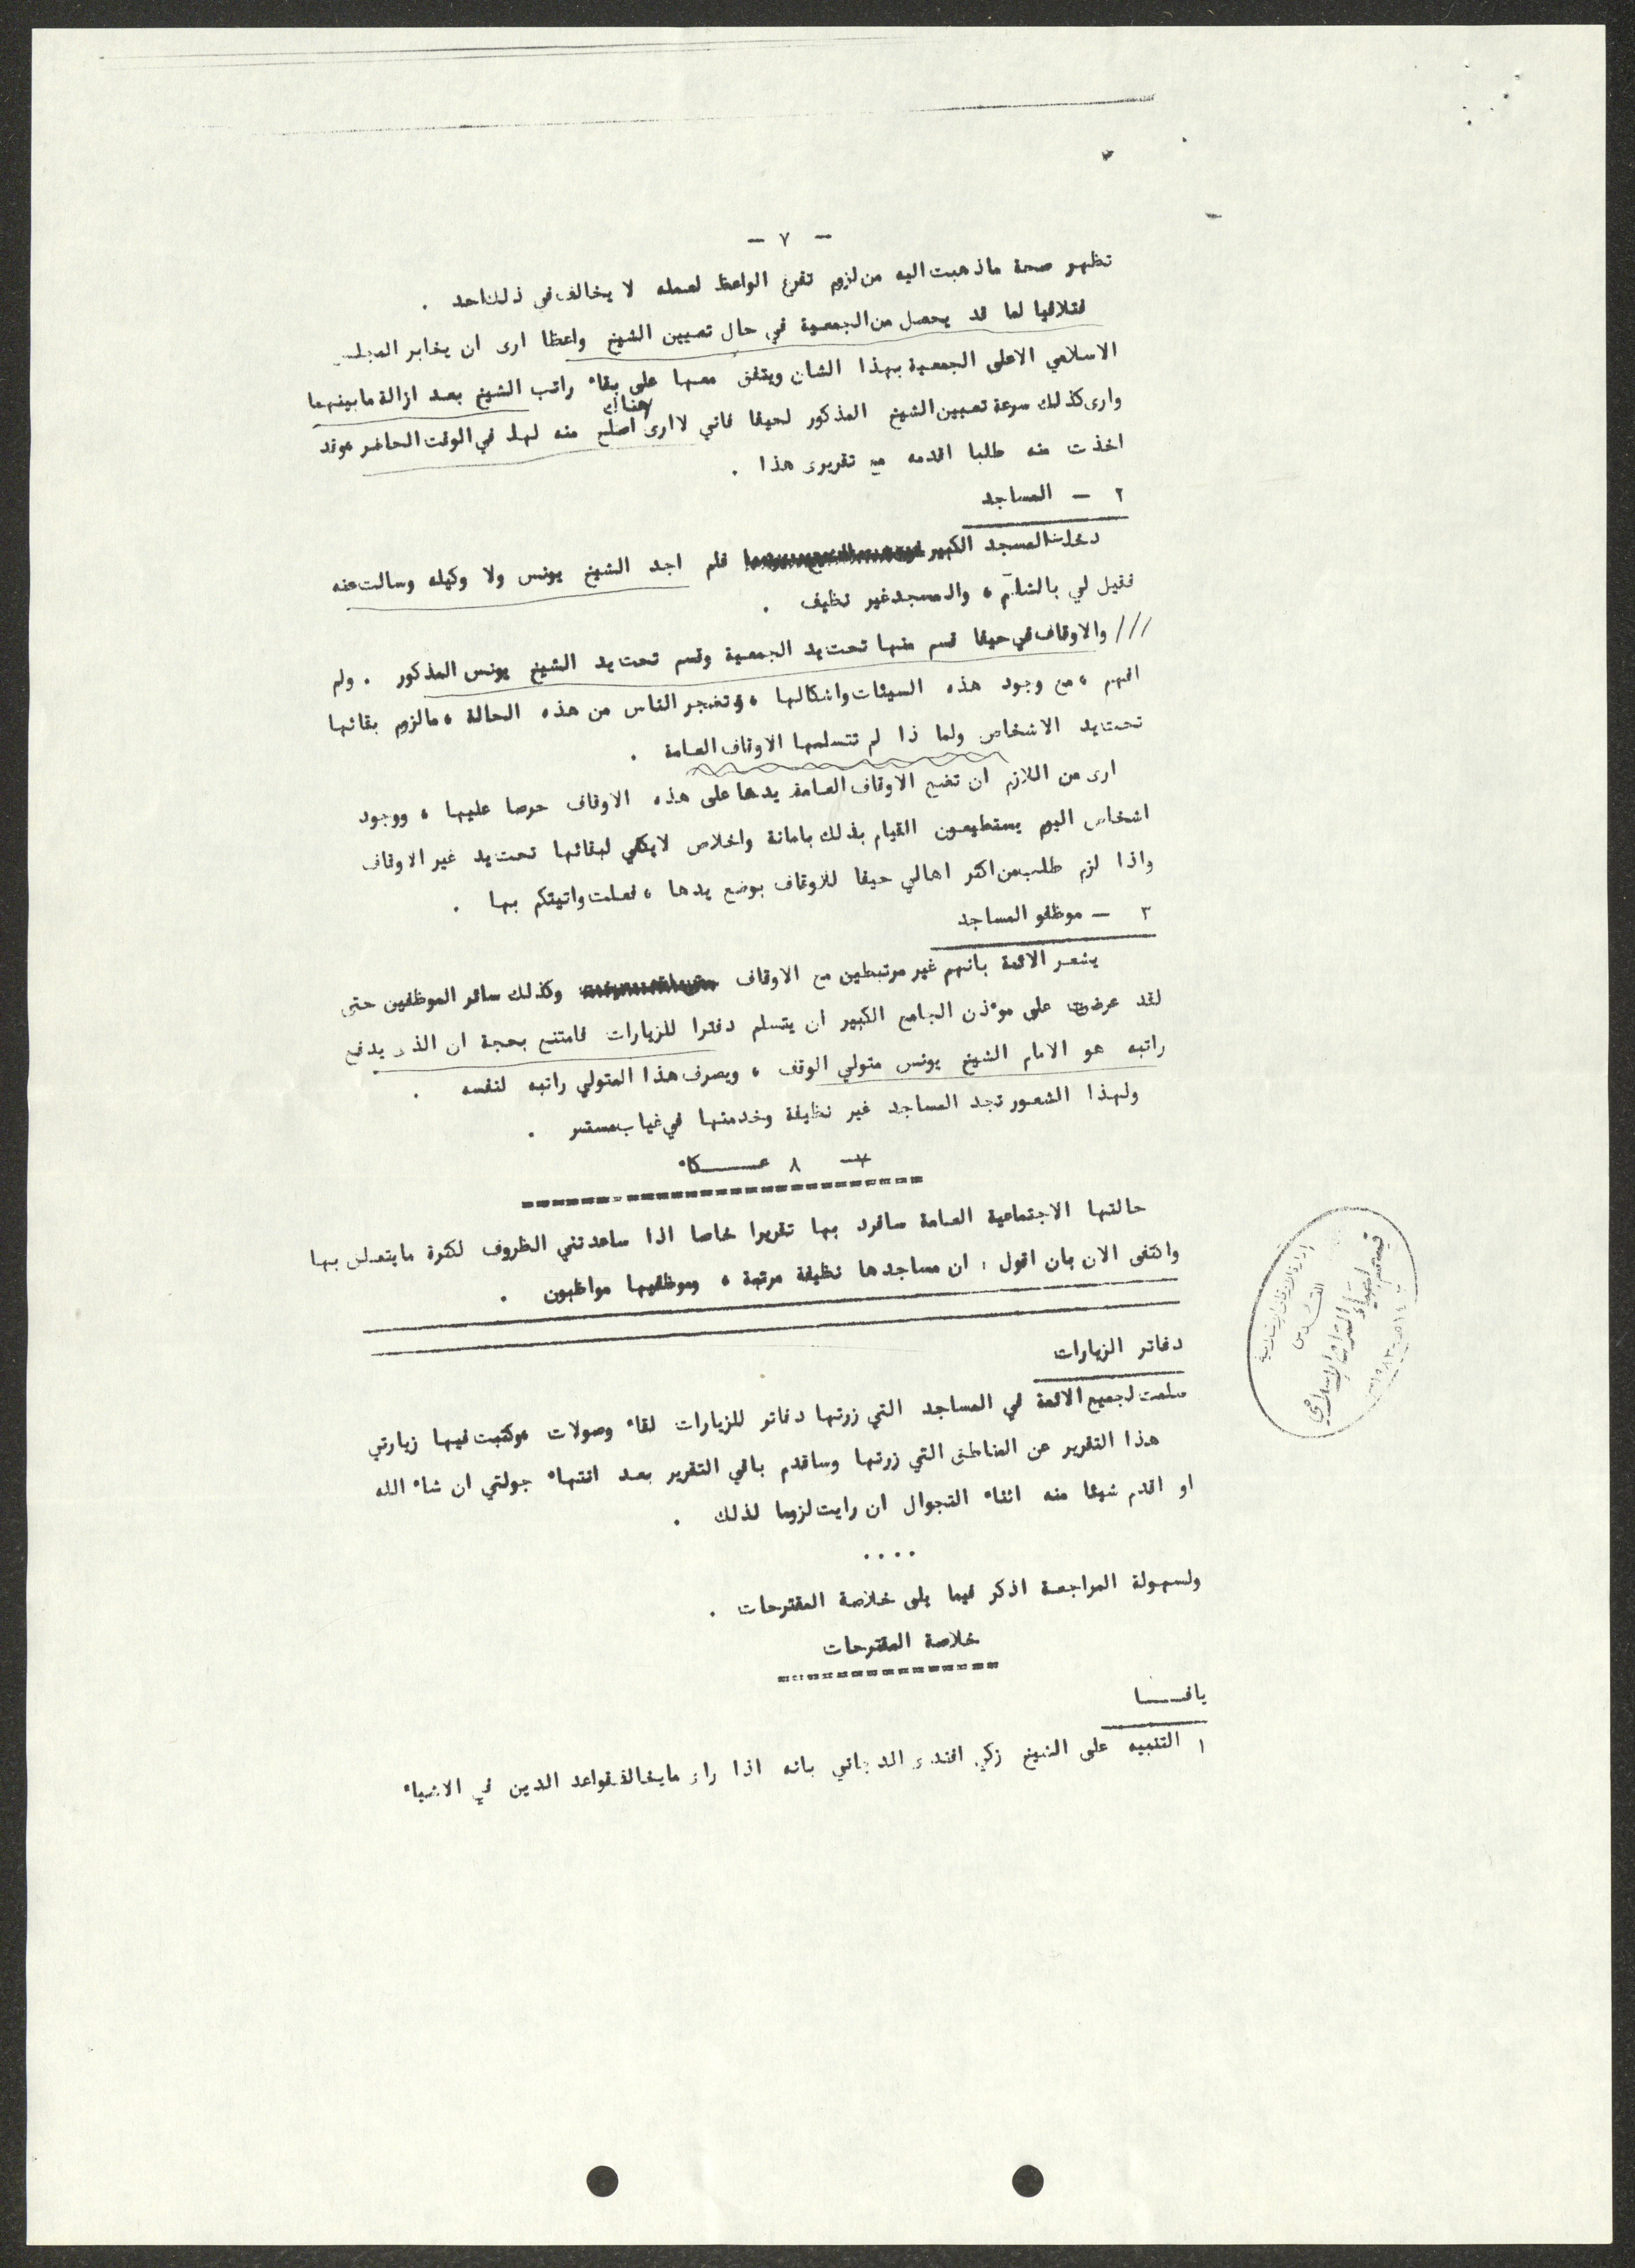 - ٧ -
تظهر صحة ماذهبت اليه من لزوم تفرغ الواعظ لعمله لا يخالف في ذلك احد .
فتلافيا لما قد يحصل من الجمعية في حال تعيين الشيخ واعظا ارى ان يخابر المجلس
الاسلامي الاعلى الجمعية بهذا الشان ويتفق معها على بقاء راتب الشيخ بعد ازالة مابينهما
وارى كذلك سرعة تعيين الشيخ المذكور لحيفا فاني لا ارى هناك اصلح منه لها في الوقت الحاضر وقد
اخذت منه طلبا اقدمه مع تقريرى هذا .
٢ - المساجد
دخلت المسجد الكبير فلم اجد الشيخ يونس ولا وكيله وسالت عنه
فقيل لي بالشام ، والمسجد غير نظيف .
/// والاوقاف في حيفا قسم منها تحت يد الجمعية وقسم تحت يد الشيخ يونس المذكور . ولم
افهم ، مع وجود هذه السيئات واشكالها ، وتضجر الناس من هذه الحالة ، مالزوم بقائها
تحت يد الاشخاص ولما ذا لم تتسلمها الاوقاف العامة .
ارى من اللازم ان تضع الاوقاف العامة يدها على هذه الاوقاف حرصا عليها ، ووجود
اشخاص اليوم يستطيعون القيام بذلك بامانة واخلاص لايكفي لبقائها تحت يد غير الاوقاف
واذا لزم طلب من اكثر اهالي حيفا للاوقاف بوضع يدها ، فعلت واتيتكم بها .
٣ - موظفو المساجد
يشعر الائمة بانهم غير مرتبطين مع الاوقاف وكذلك سائر الموظفين حتى
لقد عرضت على موءذن الجامع الكبير ان يتسلم دفترا للزيارات فامتنع بحجة ان الذى يدفع
راتبه هو الامام الشيخ يونس متولي الوقف ، ويصرف هذا المتولي راتبه لنفسه .
ولهذا الشعور تجد المساجد غير نظيفة وخدمتها في غياب مستمر .
- ٨ عـــكاء
حالتها الاجتماعية العامة سافرد بها تقريرا خاصا اذا ساعدتني الظروف لكثرة مايتعلق بها
واكتفى الان بان اقول : ان مساجدها نظيفة مرتبة ، وموظفيها مواظبون .
دفاتر الزيارات
سلمت لجميع الائمة في المساجد التي زرتها دفاتر للزيارات لقاء وصولات وكتبت فيها زيارتي
هذا التقرير عن المناطق التي زرتها وساقدم باقي التقرير بعد انتهاء جولتي ان شاء الله
او اقدم شيئا منه اثناء التجوال ان رايت لزوما لذلك .
....
ولسهولة المراجعة اذكر فيما يلى خلاصة المقترحات .
خلاصة المقترحات
يافـــا
١ التنبيه على الشيخ زكي افندى الدجاني بانه اذا راى مايخالف قواعد الدين في الاشياء
إدارة الأوقاف الإسلامية
القدس
قسم إحياء التراث الإسلامي